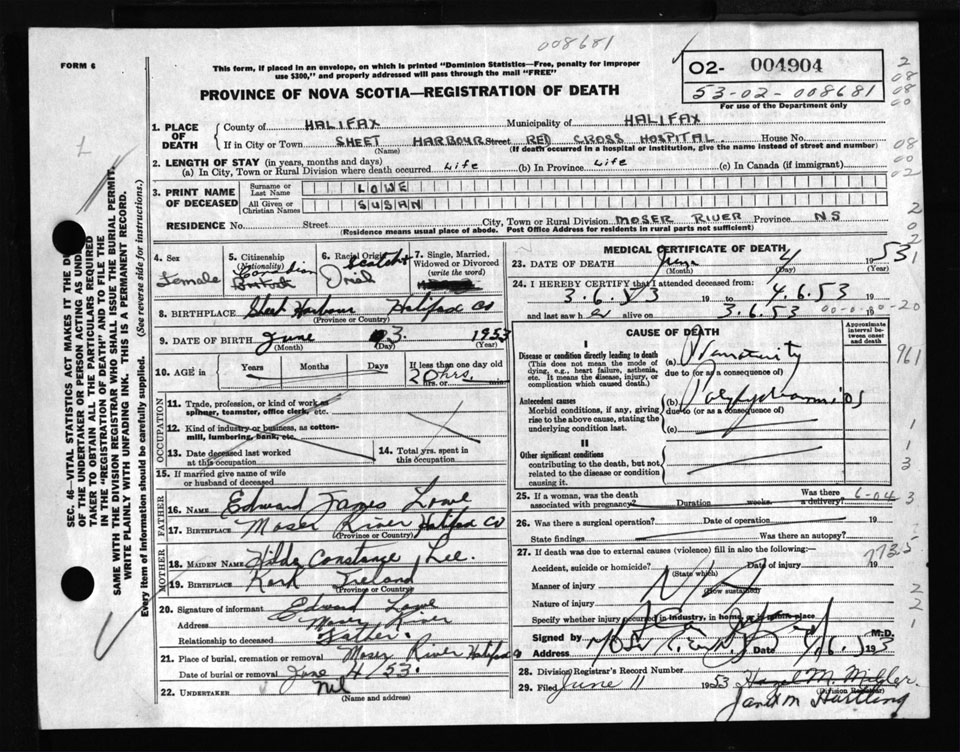 008681
FORM 6
This form, if placed in an envelope, on which is printed "Dominion Statistics—Free, penalty for improper
use $300," and properly addressed will pass through the mail "FREE"
O2- 004904
53-02-008681
For use of the Department only
PROVINCE OF NOVA SCOTIA—REGISTRATION OF DEATH
1. PLACE OF DEATH
County of HALIFAX Municipality of HALIFAX
If in City or Town SHEET HARBOUR Street RED CROSS HOSPITAL House No.
(Name) (If death occurred in a hospital or institution, give the name instead of street and number)
2. LENGTH OF STAY (in years, months and days)
(a) In City, Town or Rural Division where death occurred Life (b) In Province Life (c) In Canada (if immigrant)
3. PRINT NAME OF DECEASED
Surname or Last Name LOWE
All Given or Christian Names SUSAN
RESIDENCE No. Street City, Town or Rural Division MOSER RIVER Province NS
(Residence means usual place of abode. Post Office Address for residents in rural parts not sufficient)
4. Sex Female
5. Citizenship (Nationality) Canadian
6. Racial Origin Scotch Irish
7. Single, Married, Widowed or Divorced (write the word)
8. BIRTHPLACE Sheet Harbour Halifax Co
(Province or Country)
9. DATE OF BIRTH June 3 1953
(Month) (Day) (Year)
10. AGE in Years Months Days If less than one day old
20 hrs. or min.
OCCUPATION
11. Trade, profession, or kind of work as
spinner, teamster, office clerk, etc.
12. Kind of industry or business, as cotton-
mill, lumbering, bank, etc.
13. Date deceased last worked
at this occupation
14. Total yrs. spent in
this occupation
15. If married give name of wife
or husband of deceased
FATHER
16. NAME Edward James Lowe
17. BIRTHPLACE Moser River Halifax Co
(Province or Country)
MOTHER
18. MAIDEN NAME Hilda Constance Lee
19. BIRTHPLACE Ireland
(Province or Country)
20. Signature of informant Edward Lowe
Address Moser River
Relationship to deceased Father
21. Place of burial, cremation or removal Moser River Halifax Co
Date of burial or removal June 4/53
22. UNDERTAKER Nil
(Name and address)
MEDICAL CERTIFICATE OF DEATH
23. DATE OF DEATH June 4 1953
(Month) (Day) (Year)
24. I HEREBY CERTIFY that I attended deceased from:
3.6.53 19 to 4.6.53 19
and last saw her alive on 3.6.53 19
00-00-20
CAUSE OF DEATH
Approximate interval between onset and death
I
Disease or condition directly leading to death
(This does not mean the mode of
dying, e.g., heart failure, asthenia,
etc. It means the disease, injury, or
complication which caused death.)
(a) Prematurity
due to (or as a consequence of)
Antecedent causes
Morbid conditions, if any, giving
rise to the above cause, stating the
underlying condition last.
(b) Polyhydramnios
due to (or as a consequence of)
(c)
II
Other significant conditions
contributing to the death, but not
related to the disease or condition
causing it.
25. If a woman, was the death
associated with pregnancy? Duration weeks Was there
a delivery?
26. Was there a surgical operation? Date of operation 19
State findings Was there an autopsy?
27. If death was due to external causes (violence) fill in also the following:—
Accident, suicide or homicide? Date of injury 19
(State which)
Manner of injury
(How sustained)
Nature of injury
Specify whether injury occurred in industry, in home, or in public place
Signed by M.D.
Address Date 4.6.53
28. Division Registrar's Record Number
29. Filed June 11 1953 Hazel M. Miller
(Division Registrar)
Janet M Hartling
SEC. 46—VITAL STATISTICS ACT MAKES IT THE DU
OF THE UNDERTAKER OR PERSON ACTING AS UND
TAKER TO OBTAIN ALL THE PARTICULARS REQUIRED
IN THE "REGISTRATION OF DEATH" AND TO FILE THE
SAME WITH THE DIVISION REGISTRAR WHO SHALL ISSUE THE BURIAL PERMIT.
WRITE PLAINLY WITH UNFADING INK. THIS IS A PERMANENT RECORD.
Every item of information should be carefully supplied. (See reverse side for instructions.)
2
08
08
00
08
00
02
961
6-04
773.5